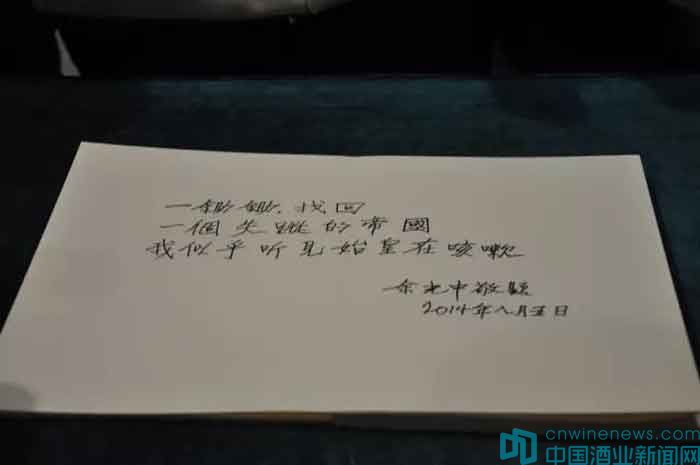 一鋤鋤，找回
一個失蹤的帝國
我似乎听見始皇在咳嗽
余光中敬題
2014年八月五日
cnwinenews.com
中国酒业新闻网